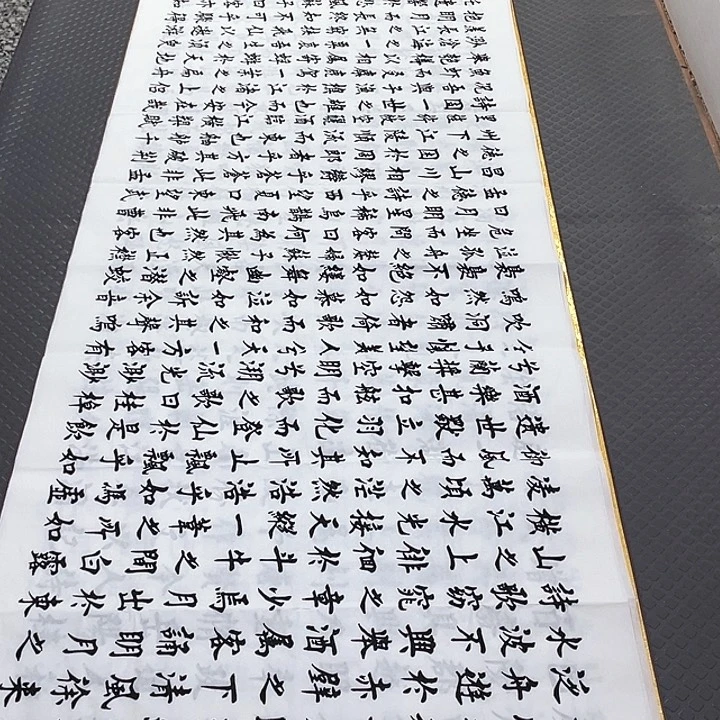 泛舟遊於赤壁之下清風徐來
水波不興舉酒屬客誦明月之
詩歌窈窕之章少焉月出於東
山之上徘徊於斗牛之間白露
橫江水光接天縱一葦之所如
凌萬頃之茫然浩浩乎如馮虛
御風而不知其所止飄飄乎如
遺世獨立羽化而登仙於是飲
酒樂甚扣舷而歌之歌曰桂棹
兮蘭槳擊空明兮溯流光渺渺
兮予懷望美人兮天一方客有
吹洞簫者倚歌而和之其聲嗚
嗚然如怨如慕如泣如訴餘音
裊裊不絕如縷舞幽壑之潛蛟
泣孤舟之嫠婦蘇子愀然正襟
危坐而問客曰何為其然也客
曰月明星稀烏鵲南飛此非曹
孟德之詩乎西望夏口東望武
昌山川相繆鬱乎蒼蒼此非孟
德之困於周郎者乎方其破荊
州下江陵順流而東也舳艫千
里旌旗蔽空釃酒臨江橫槊賦
詩固一世之雄也而今安在哉
況吾與子漁樵於江渚之上侶
魚蝦而友麋鹿駕一葉之扁舟
舉匏樽以相屬寄蜉蝣於天地
渺滄海之一粟哀吾生之須臾
羨長江之無窮挾飛仙以遨遊